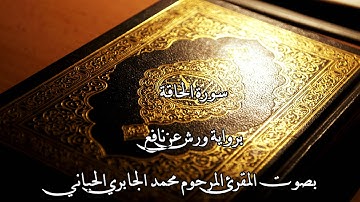 سورة الحاقة
برواية ورش عن نافع
بصوت المقرئ المرحوم محمد الجابري الحياني